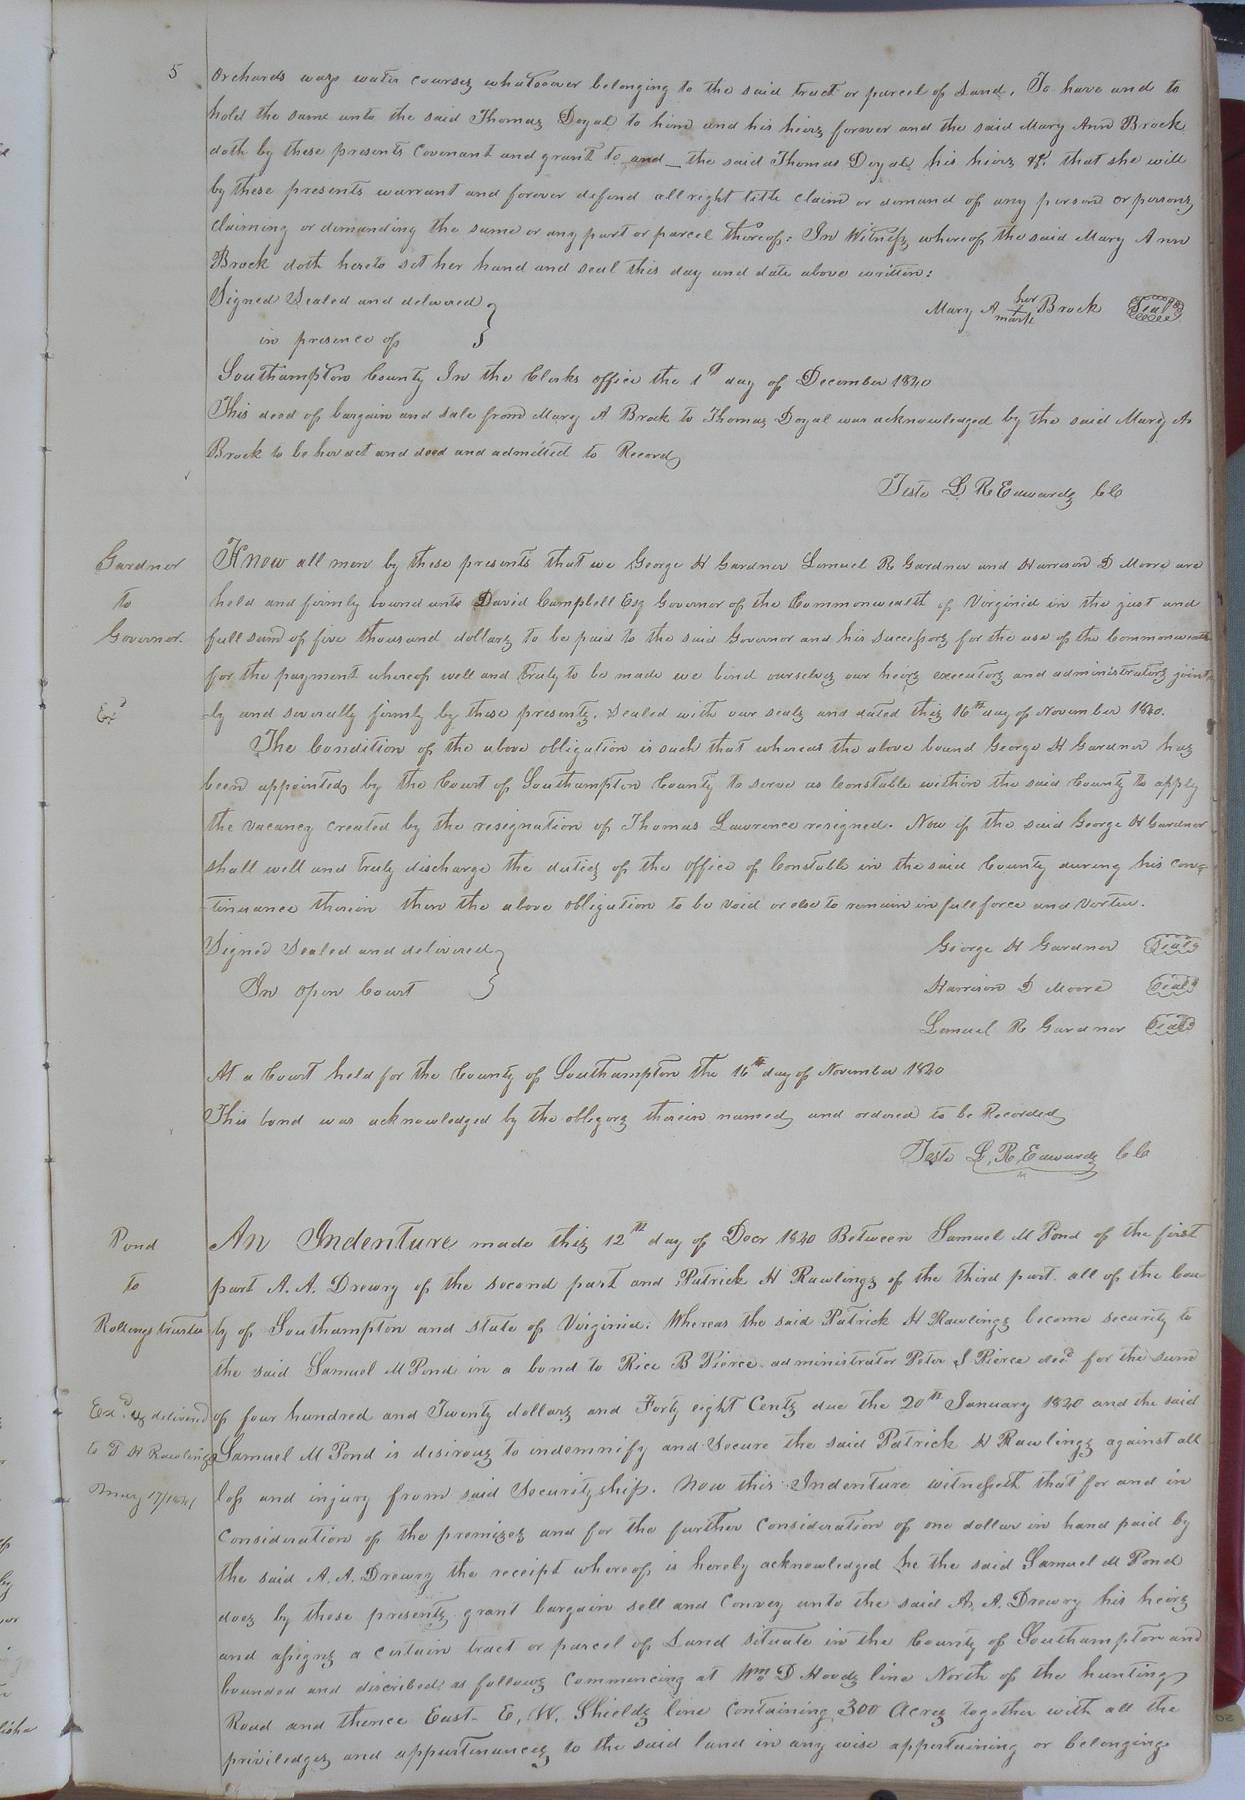 5
Orchards ways water courses whatsoever belonging to the said tract or parcel of Land. To have and to
hold the same unto the said Thomas Doyal to him and his heirs forever and the said Mary Ann Brock
doth by these presents Covenant and grant to and the said Thomas Doyal his heirs &c. that she will
by these presents warrant and forever defend all right title claim or demand of any person or persons
claiming or demanding the same or any part or parcel thereof: In Witness whereof the said Mary Ann
Brock doth hereto set her hand and seal this day and date above written:
Signed Sealed and delivered
Mary A her mark Brock Seal
in presence of
Southampton County In the Clerks office the 1st day of December 1840
This deed of bargain and sale from Mary A Brock to Thomas Doyal was acknowledged by the said Mary A
Brock to be her act and deed and admitted to Record
Teste L R Edwards CC
Gardner
to
Governor
Exd
Know all men by these presents that we George H Gardner Lemuel R Gardner and Harrison D Moore are
held and firmly bound unto David Campbell Esq Governor of the Commonwealth of Virginia in the just and
full sum of five thousand dollars to be paid to the said Governor and his successors for the use of the Commonwealth
for the payment whereof well and truly to be made we bind ourselves our heirs executors and administrators joint
ly and severally firmly by these presents. Sealed with our seals and dated this 16th day of November 1840.
The Condition of the above obligation is such that whereas the above bound George H Gardner has
been appointed by the Court of Southampton County to serve as Constable within the said County to apply
the vacancy created by the resignation of Thomas Lawrence resigned. Now if the said George H Gardner
shall well and truly discharge the duties of the office of Constable in the said County during his con-
-tinuance therein then the above obligation to be void or else to remain in full force and vertue.
Signed Sealed and delivered
In open Court
George H Gardner Seal
Harrison D Moore Seal
Lemuel R Gardner Seal
At a Court held for the County of Southampton the 16th day of November 1840
This bond was acknowledged by the obligors therein named and ordered to be Recorded
Teste L. R. Edwards CC
Pond
to
Rollings trustee
Exd. & delivered
to P H Rawlings
May 17/1841
An Indenture made this 12th day of Decr 1840 Between Samuel M Pond of the first
part A. A. Drewry of the second part and Patrick H Rawlings of the third part. all of the Coun
ty of Southampton and state of Virginia: Whereas the said Patrick H Rawlings become security to
the said Samuel M Pond in a bond to Rice B Pierce administrator Peter S Pierce decd for the sum
of four hundred and Twenty dollars and Forty eight Cents due the 20th January 1840 and the said
Samuel M Pond is disirous to indemnify and Secure the said Patrick H Rawlings against all
loss and injury from said Securityship. Now this Indenture witnesseth that for and in
Consideration of the premises and for the further Consideration of one dollar in hand paid by
the said A. A. Drewry the receipt whereof is hereby acknowledged he the said Samuel M Pond
does by these presents grant bargain sell and Convey unto the said A. A. Drewry his heirs
and assigns a certain tract or parcel of Land situate in the County of Southampton and
bounded and discribed as follows Commencing at Wm D Hoods line North of the hunting
Road and thence East E. W. Shields line Containing 300 Acres together with all the
priviledges and appurtinances to the said land in any wise appertaining or belonging.